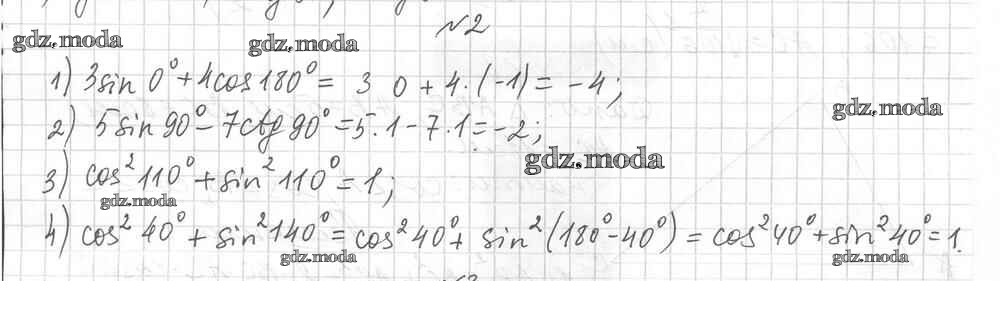 №2
gdz.moda gdz.moda
1) 3sin 0° + 4cos 180° = 3 0 + 4·(-1) = -4;
gdz.moda
2) 5sin 90° - 7ctg 90° = 5·1 - 7·1 = -2;
gdz.moda
3) cos² 110° + sin² 110° = 1;
gdz.moda
4) cos² 40° + sin² 140° = cos² 40° + sin² (180° - 40°) = cos² 40° + sin² 40° = 1.
gdz.moda gdz.moda